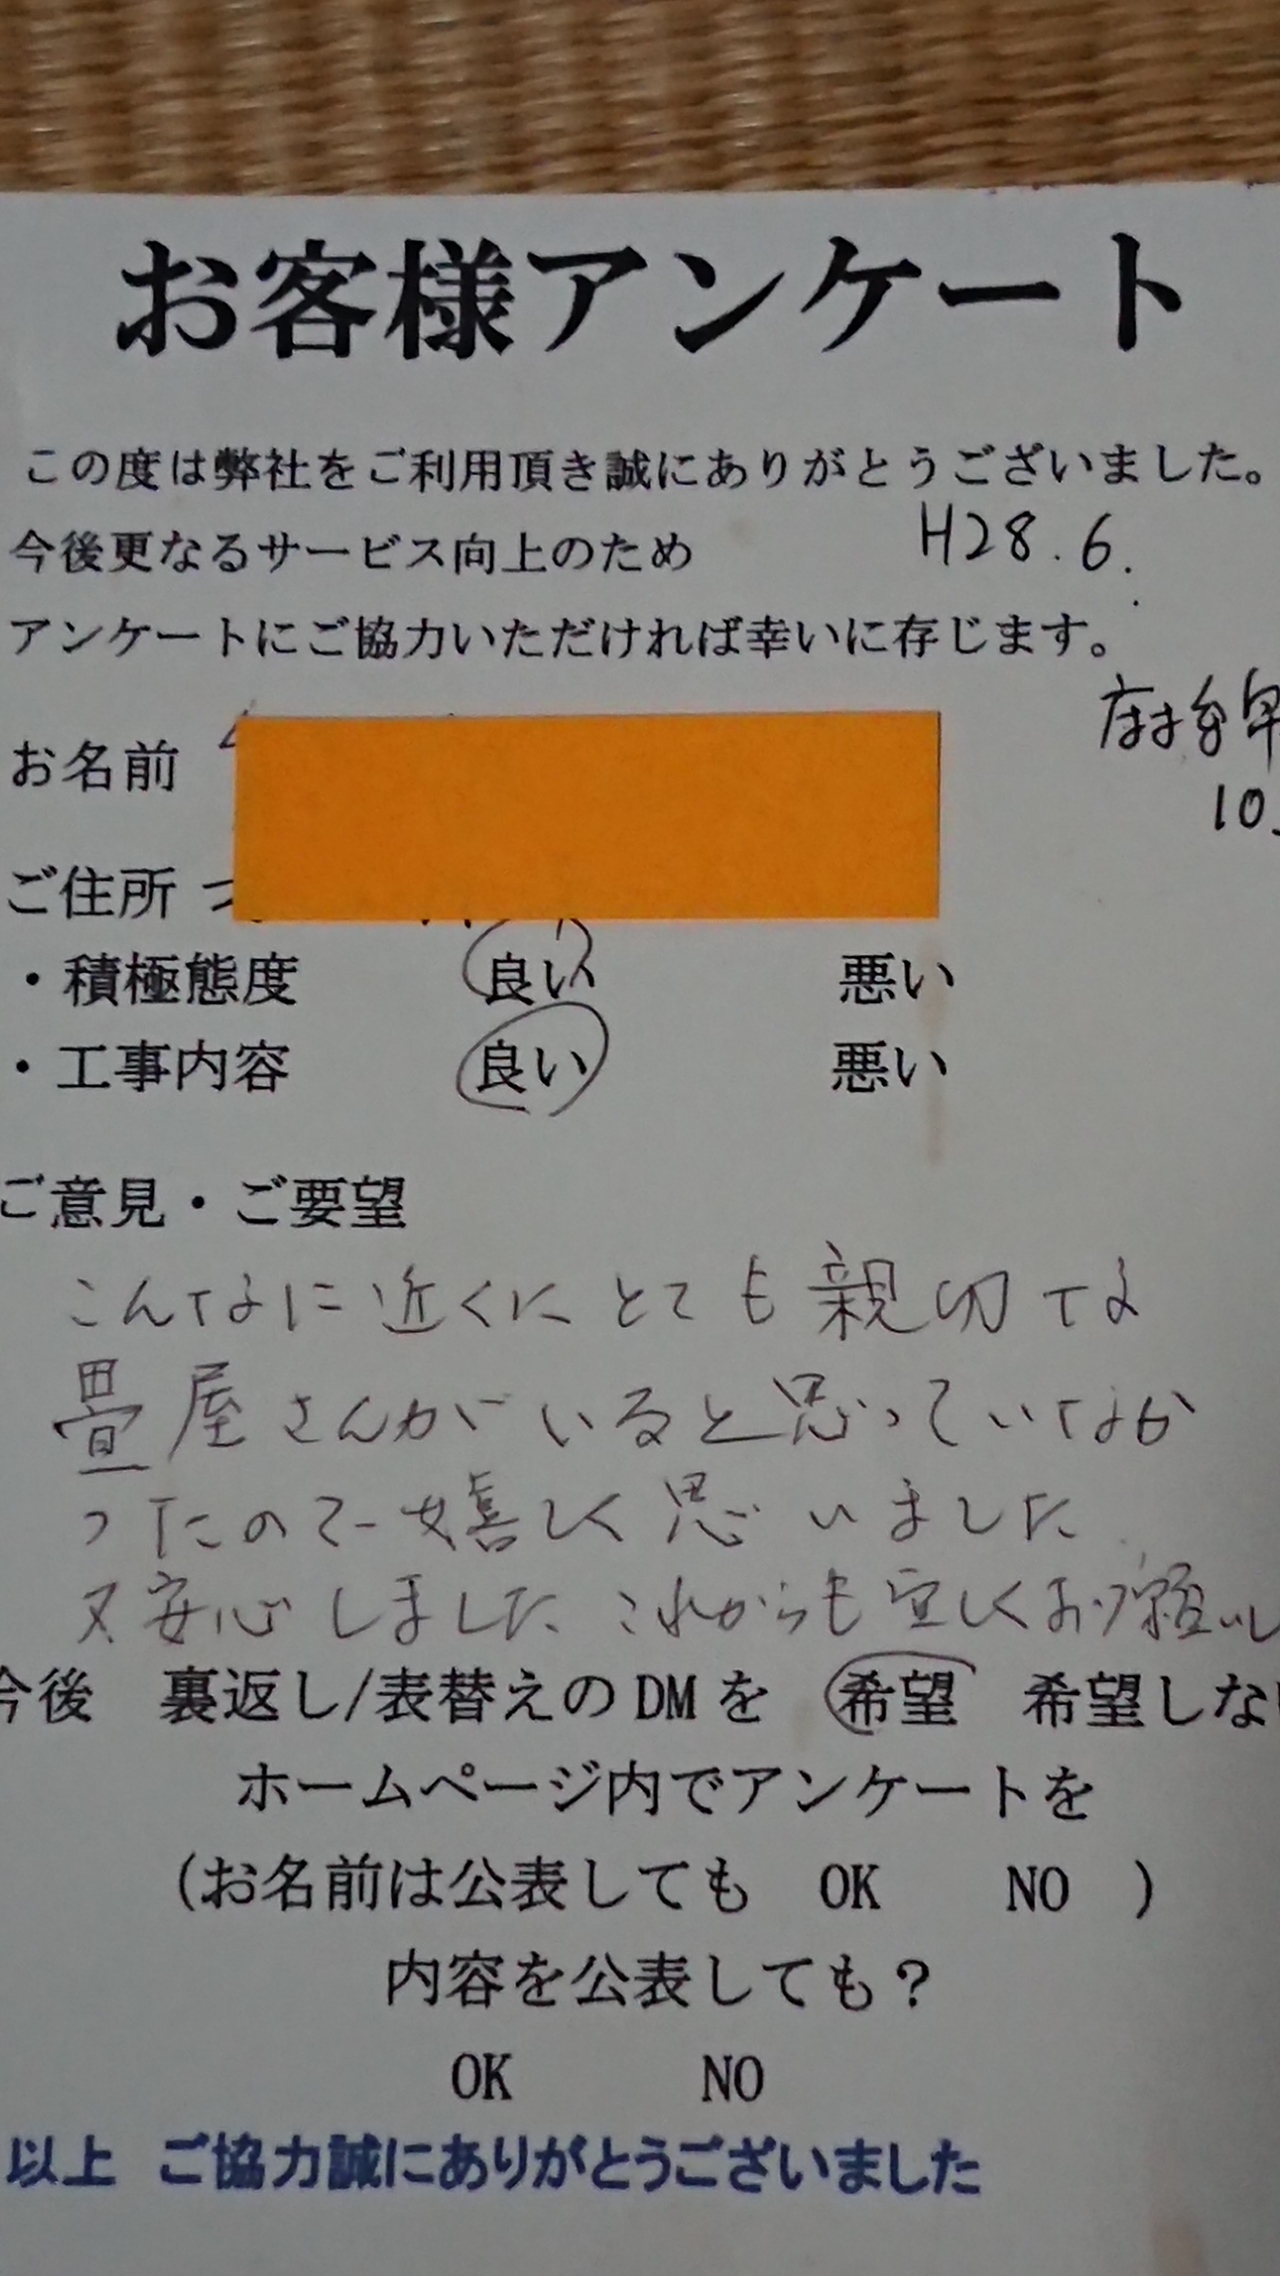 お客様アンケート
この度は弊社をご利用頂き誠にありがとうございました。
今後更なるサービス向上のため
H28.6.
アンケートにご協力いただければ幸いに存じます。
麻綿
10
お名前
ご住所
・積極態度 良い 悪い
・工事内容 良い 悪い
ご意見・ご要望
こんなに近くにとても親切な
畳屋さんがいると思っていなか
ったので嬉しく思いました
又安心しました これからも宜しくお願いし
今後 裏返し/表替えのDMを 希望 希望しない
ホームページ内でアンケートを
(お名前は公表しても OK NO )
内容を公表しても?
OK NO
以上 ご協力誠にありがとうございました